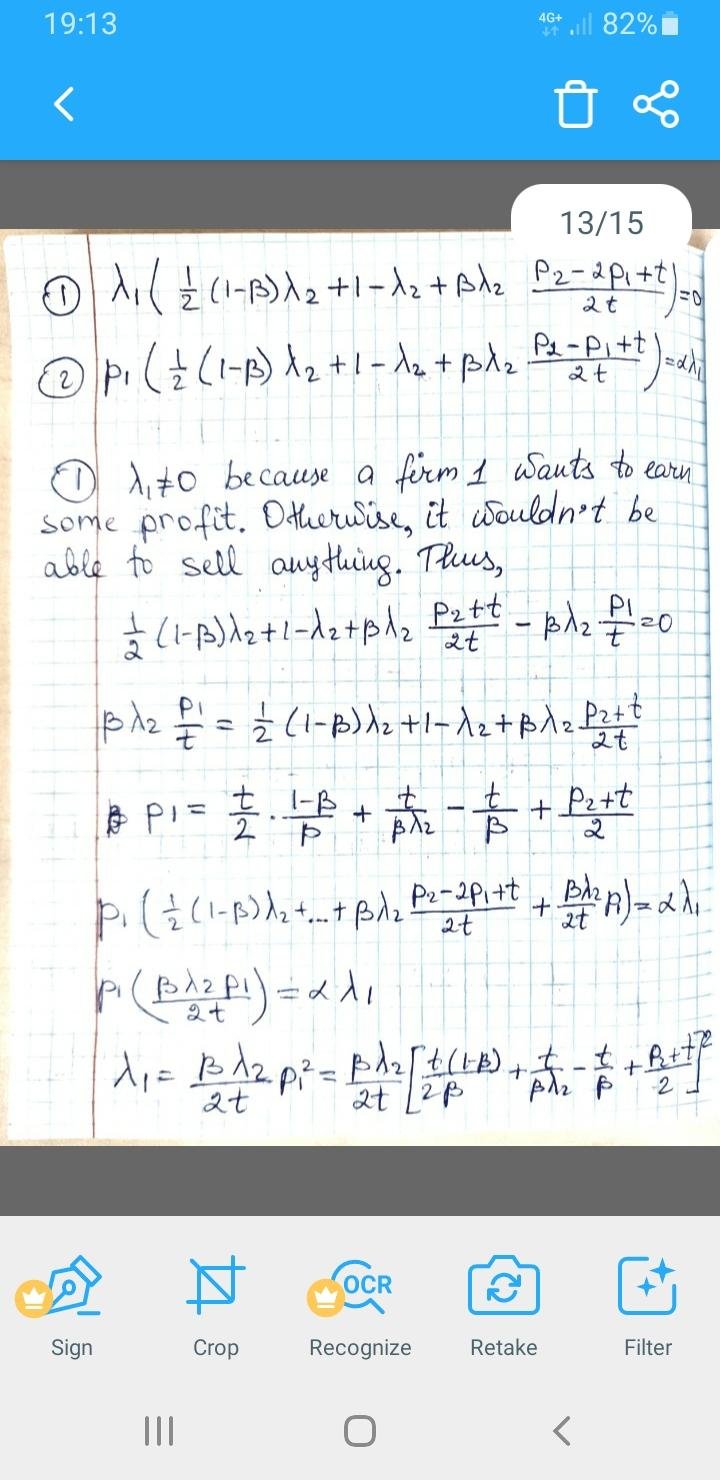 19:13 4G+ 82%
13/15
① λ₁( 1/2 (1-β)λ₂ + 1 - λ₂ + βλ₂ (p₂ - 2p₁ + t)/2t ) = 0
② p₁ ( 1/2 (1-β) λ₂ + 1 - λ₂ + βλ₂ (p₂ - p₁ + t)/2t ) = αλ₁
① λ₁≠0 because a firm 1 wants to earn
some profit. Otherwise, it wouldn't be
able to sell anything. Thus,
1/2 (1-β)λ₂ + 1 - λ₂ + βλ₂ (p₂+t)/2t - βλ₂ p₁/t = 0
βλ₂ p₁/t = 1/2 (1-β)λ₂ + 1 - λ₂ + βλ₂ (p₂+t)/2t
p₁ = t/2 · (1-β)/β + t/βλ₂ - t/β + (p₂+t)/2
p₁ ( 1/2 (1-β)λ₂ + ... + βλ₂ (p₂ - 2p₁ + t)/2t + βλ₂/2t p₁ ) = αλ₁
p₁ ( βλ₂p₁/2t ) = αλ₁
λ₁ = βλ₂/2t p₁² = βλ₂/2t [ t(1-β)/2β + t/βλ₂ - t/β + (p₂+t)/2 ]²
Sign Crop OCR Recognize Retake Filter